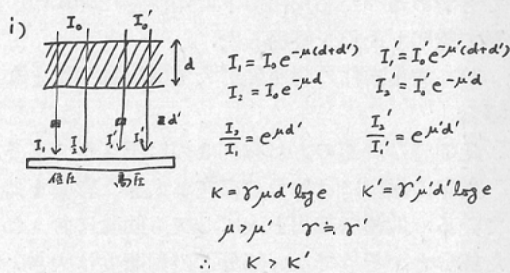 i)
I₀ I₀′
d
d′
I₁ I₂ I₁′ I₂′
低圧 高圧
I₁ = I₀e^{-μ(d+d′)} I₁′ = I₀′e^{-μ′(d+d′)}
I₂ = I₀e^{-μd} I₂′ = I₀′e^{-μ′d}
I₂/I₁ = e^{μd′} I₂′/I₁′ = e^{μ′d′}
K = γμd′loge K′ = γ′μ′d′loge
μ > μ′ γ ≒ γ′
∴ K > K′